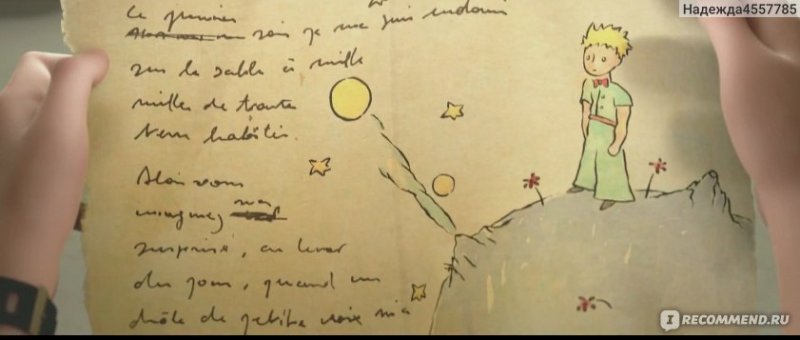 Надежда4557785
Le premier
soir je me suis endormi
sur le sable à mille
milles de toute
terre habitée.
Alors vous
imaginez ma
surprise, au lever
du jour, quand une
drôle de petite voix m'a
IRECOMMEND.RU